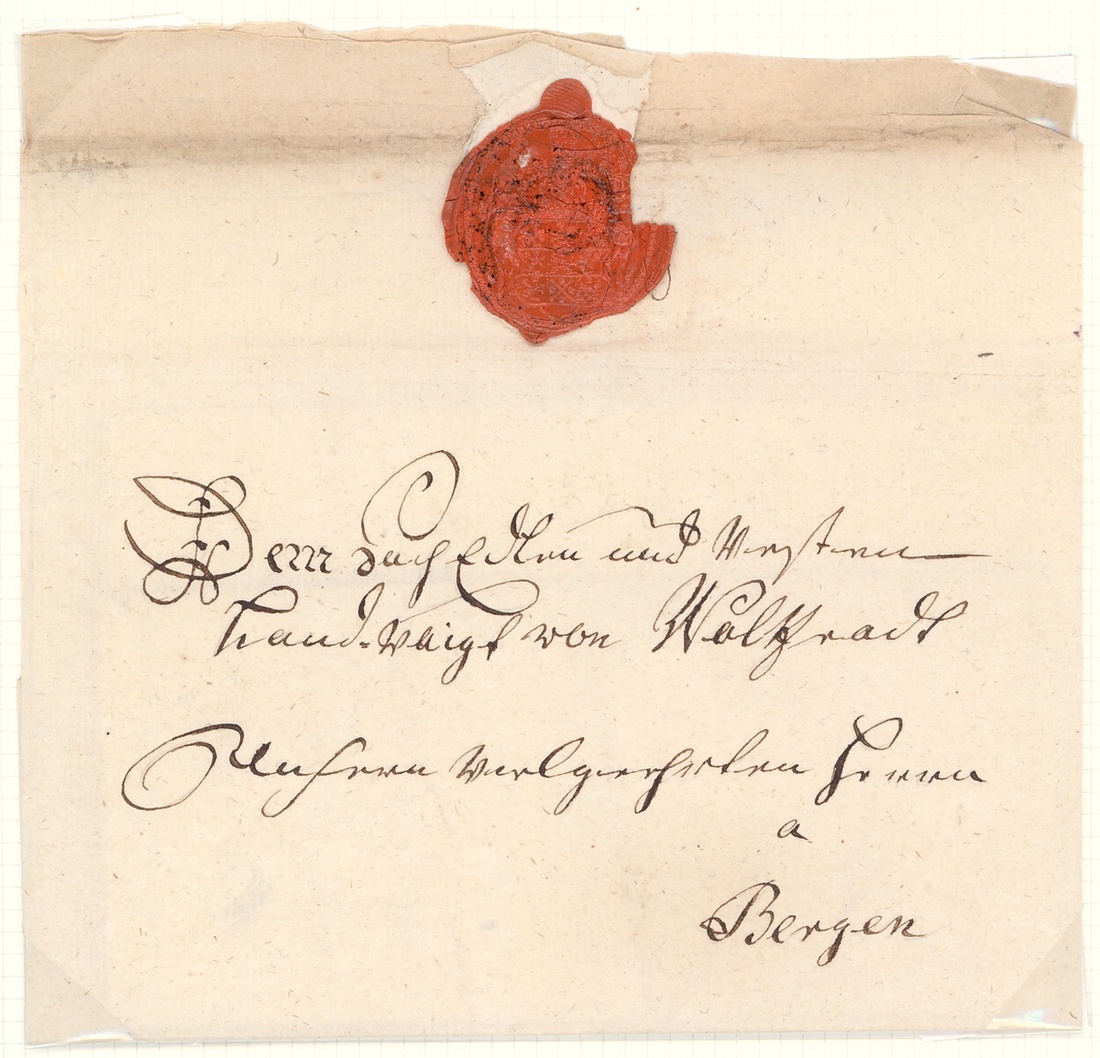 Dem HochEdlen und Vesten
Land-Voigt von Woltfradt
Unsern vielgeehrten Herrn
a
Bergen